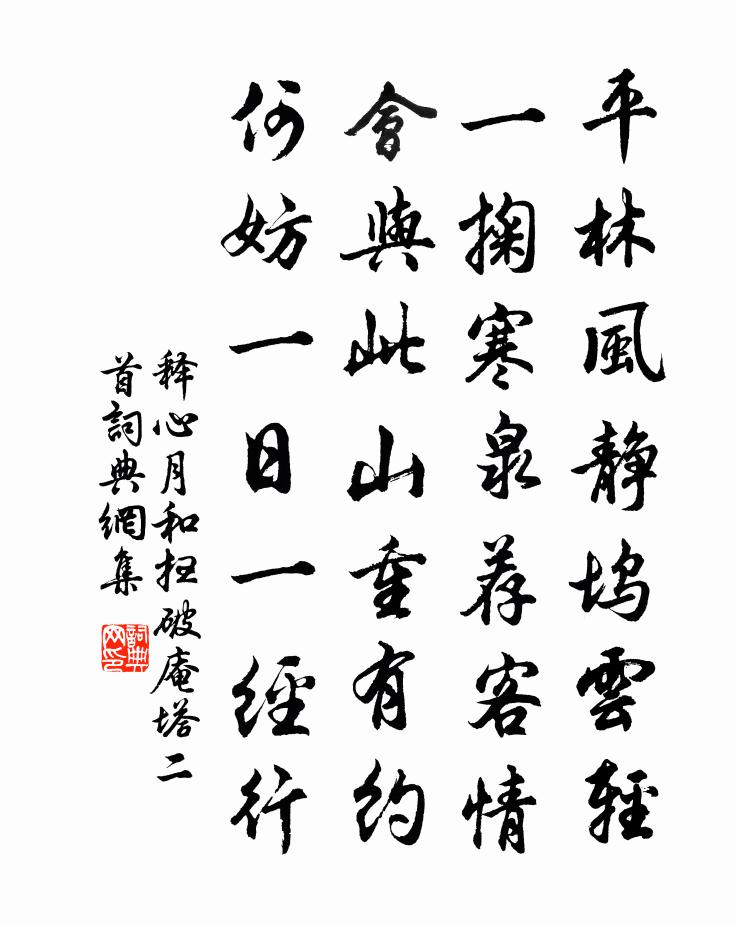 平林風靜塢雲輕
一掬寒泉荐客情
會與此山重有約
何妨一日一經行
释心月和扫破庵塔二
首詞典網集
詞典網印